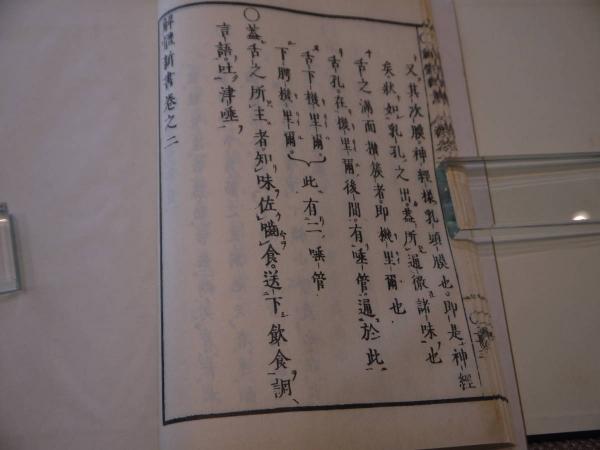 又其次膜神經樣乳頭膜也即是神經
矣狀如乳孔之出蓋所通徹諸味也
舌之滿面攢簇者即機里爾也
舌孔在機里爾後間有唾管通於此
舌下機里爾
下腭機里爾
此有二唾管
○蓋舌之所主者知味佐嚙食送下飲食調
言語吐津唾
解體新書卷之二